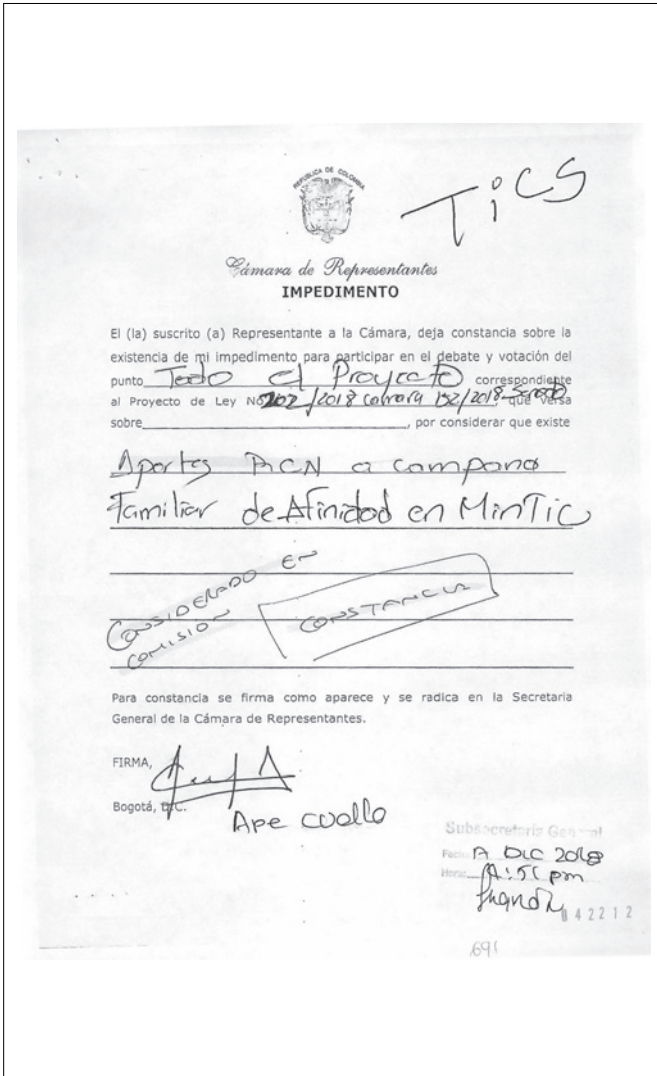 REPUBLICA DE COLOMBIA
TiCS
Cámara de Representantes
IMPEDIMENTO
El (la) suscrito (a) Representante a la Cámara, deja constancia sobre la
existencia de mi impedimento para participar en el debate y votación del
punto Todo el Proyecto correspondiente
al Proyecto de Ley No 202/2018 camara 152/2018 Senado, que versa
sobre , por considerar que existe
Aportes RCN a campana
Familiar de Afinidad en MinTic
CONSIDERADO EN
COMISION
CONSTANCIA
Para constancia se firma como aparece y se radica en la Secretaria
General de la Cámara de Representantes.
FIRMA,
Bogotá, D.C.
Ape Cuello
Subsecretaria General
Fecha: DIC 2018
Hora: pm
042212
691